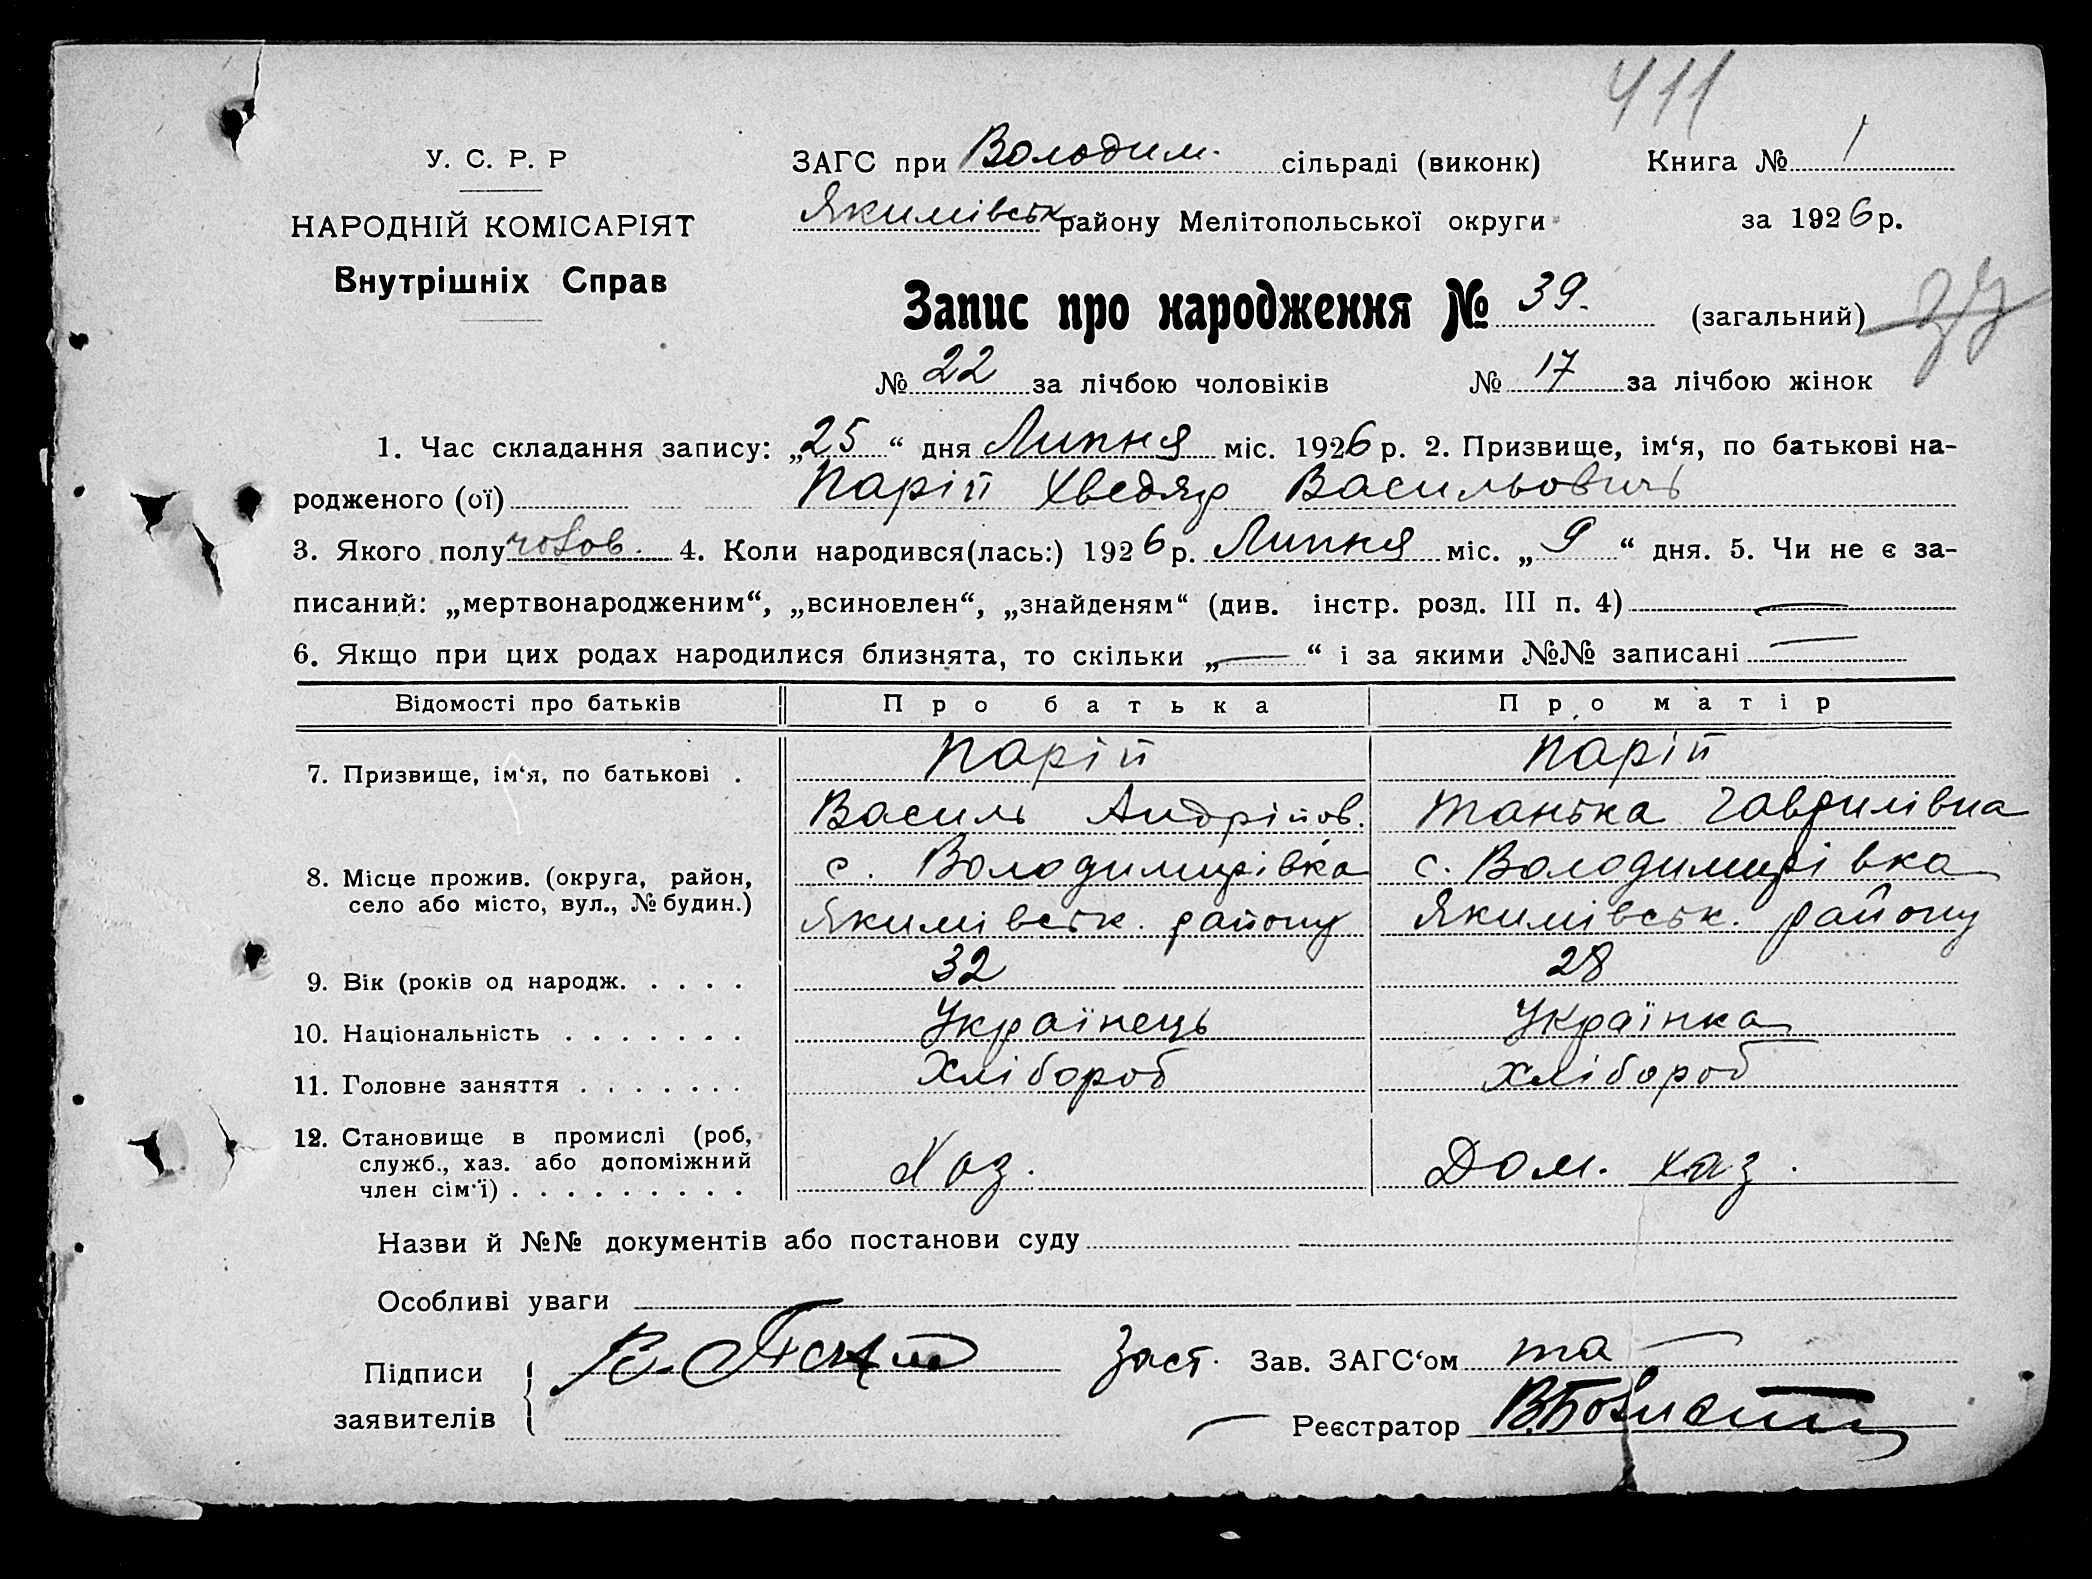 411
У. С. Р. Р
ЗАГС при Володим. сільраді (виконк) Книга № 1
НАРОДНІЙ КОМІСАРІЯТ
Якимівськ району Мелітопольської округи за 1926 р.
Внутрішніх Справ
Запис про народження № 39. (загальний)
№ 22 за лічбою чоловіків № 17 за лічбою жінок
1. Час складання запису: „25“ дня Липня міс. 1926 р. 2. Призвище, ім‘я, по батькові на-
родженого (ої) Парій Хведяр Васильович
3. Якого полу чолов. 4. Коли народився(лась:) 1926 р. Липня міс. „9“ дня. 5. Чи не є за-
писаний: „мертвонародженим“, „всиновлен“, „знайденям“ (див. інстр. розд. III п. 4) —
6. Якщо при цих родах народилися близнята, то скільки „—“ і за якими №№ записані —
Відомості про батьків Про батька Про матір
7. Призвище, ім‘я, по батькові . Парій Парій
Василь Андрійов. Танька Гаврилівна
8. Місце прожив. (округа, район, с. Володимирівка с. Володимирівка
село або місто, вул., № будин.) Якимівськ. району Якимівськ. району
9. Вік (років од народж. . . . . 32 28
10. Національність . . . . . . . Українець Українка
11. Головне заняття . . . . . . . Хлібороб Хлібороб
12. Становище в промислі (роб,
служб., хаз. або допоміжний Хаз. Дом. хаз.
член сім‘ї) . . . . . . . . .
Назви й №№ документів або постанови суду
Особливі уваги
Підписи Заст. Зав. ЗАГС‘ом та —
заявителів
— Реєстратор